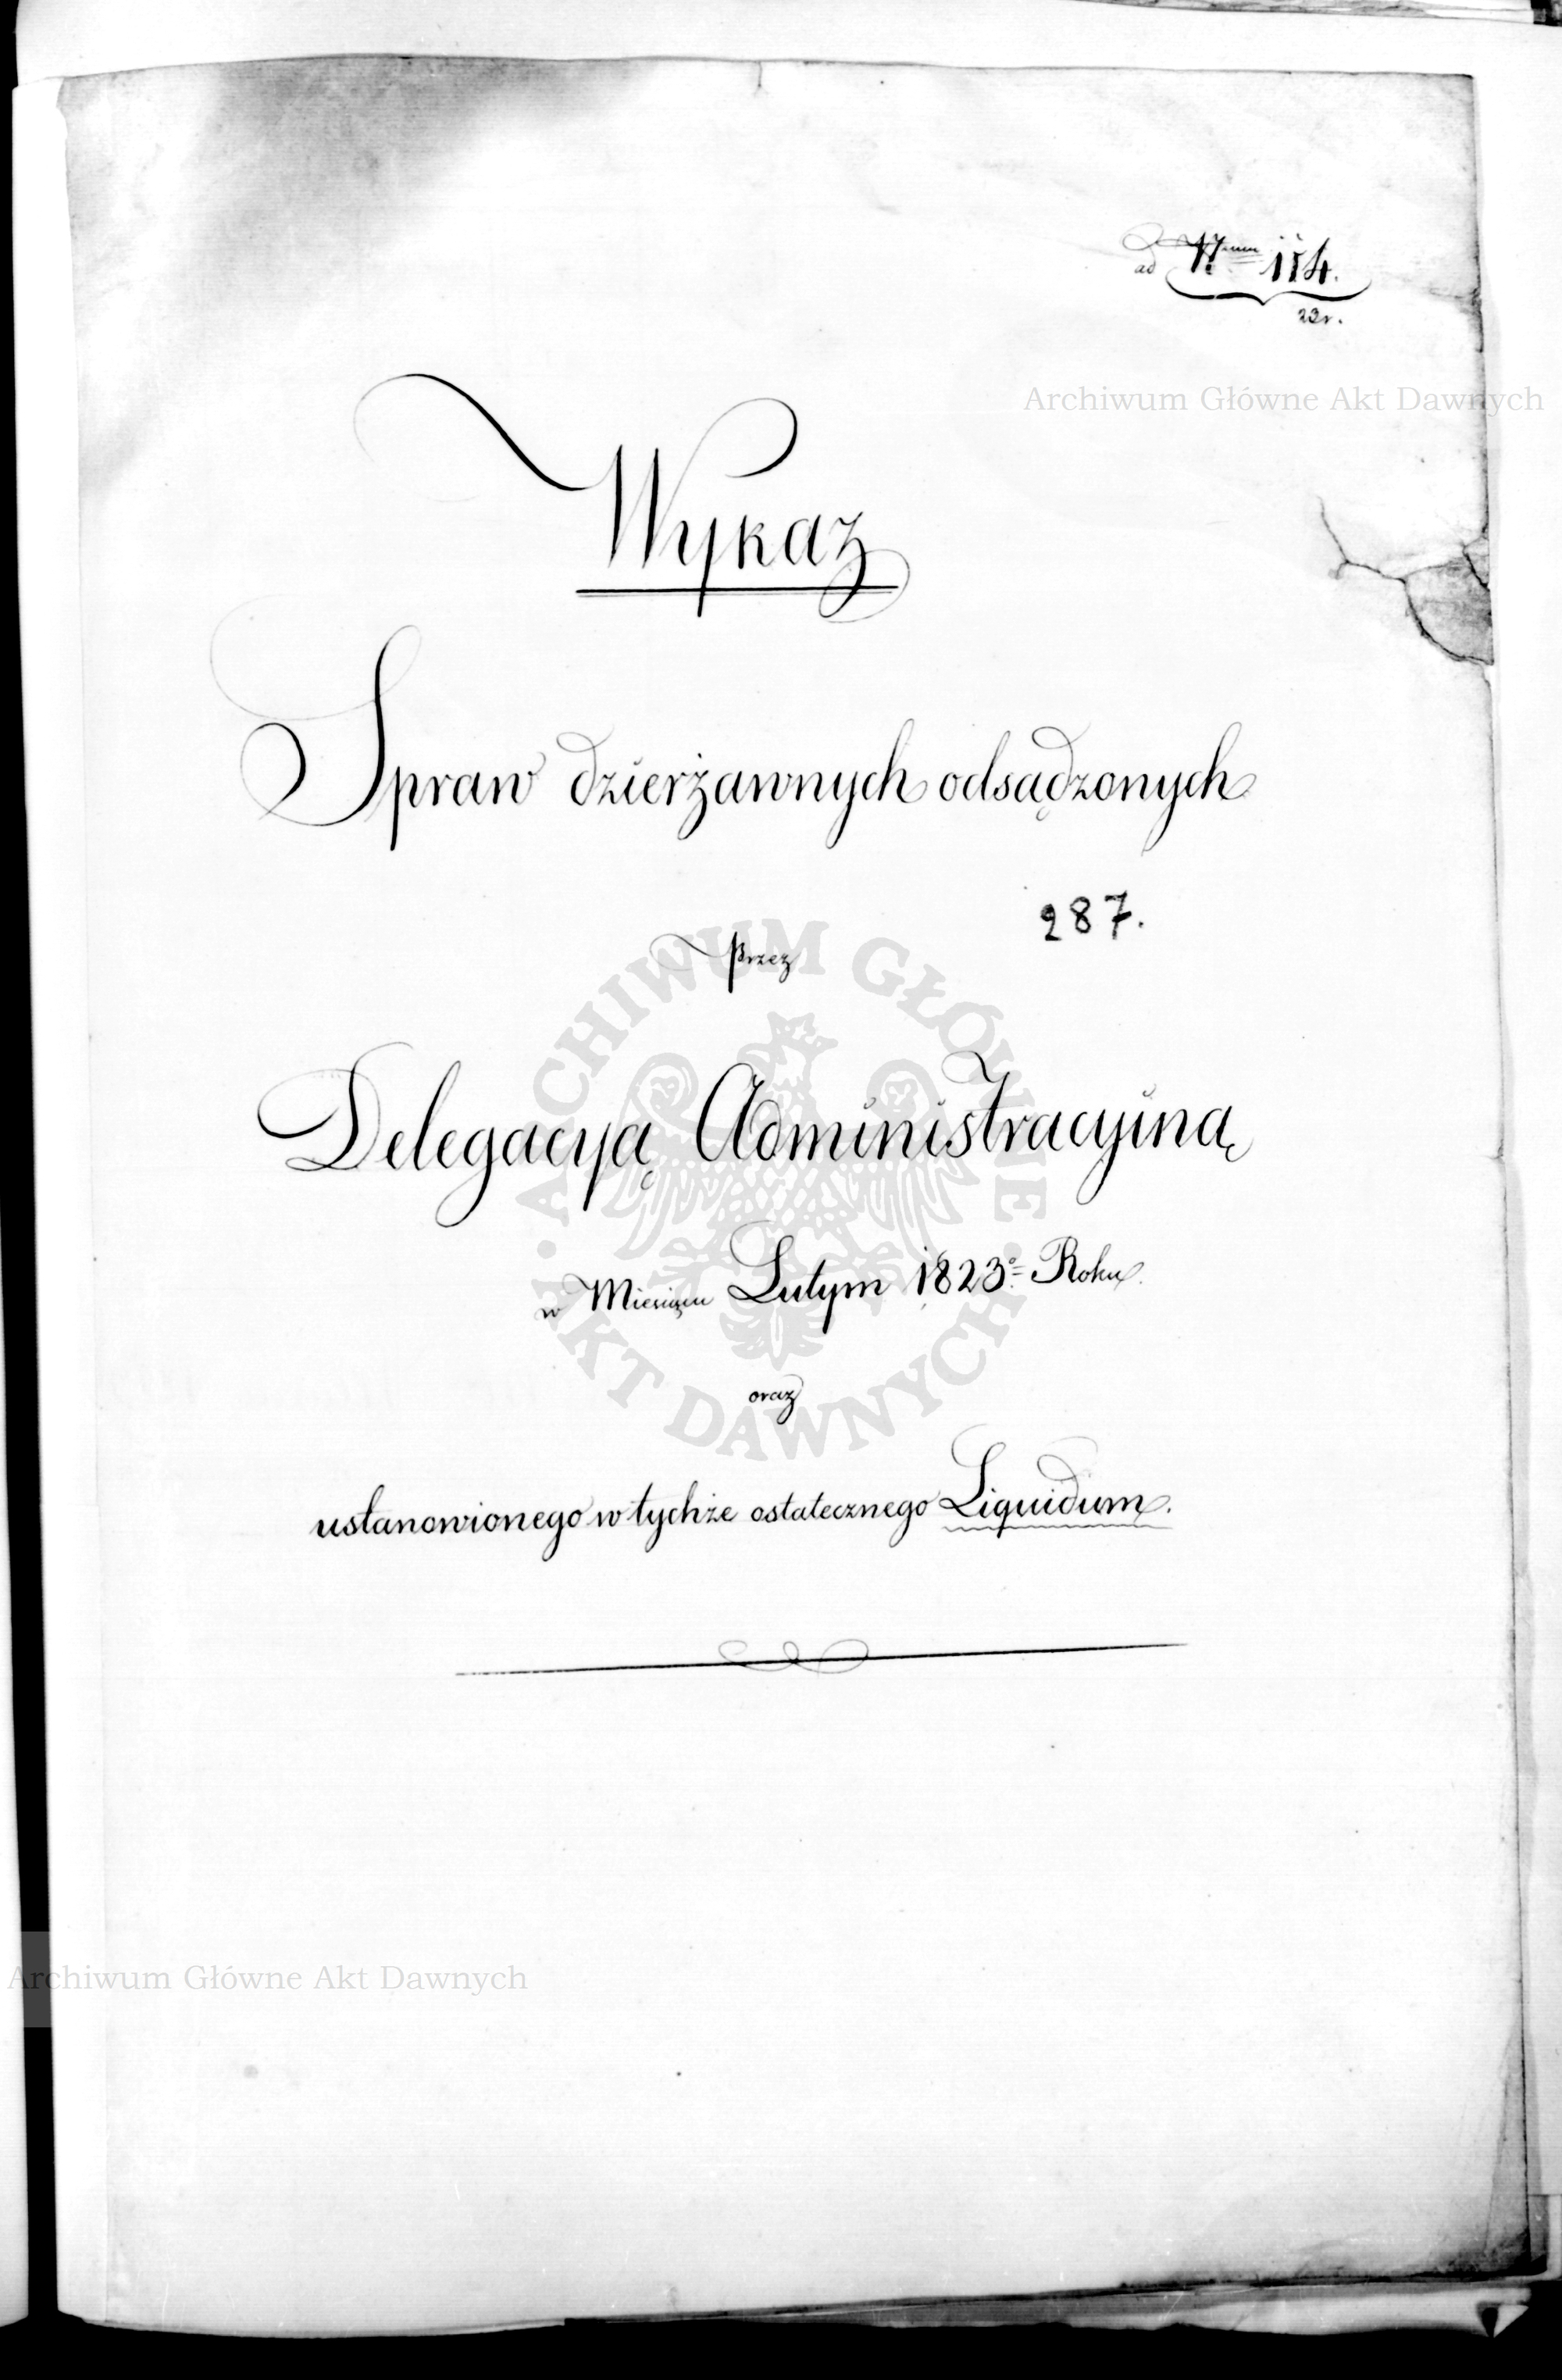 ad Nrum 184.
23 r.
Archiwum Główne Akt Dawnych
Wykaz
Spraw dzierżawnych odsądzonych
287.
Przez
Delegacyą Administracyiną
w Miesiącu Lutym 1823o Roku.
oraz
ustanowionego w tychże ostatecznego Liquidum.
ARCHIWUM GŁÓWNE AKT DAWNYCH
Archiwum Główne Akt Dawnych